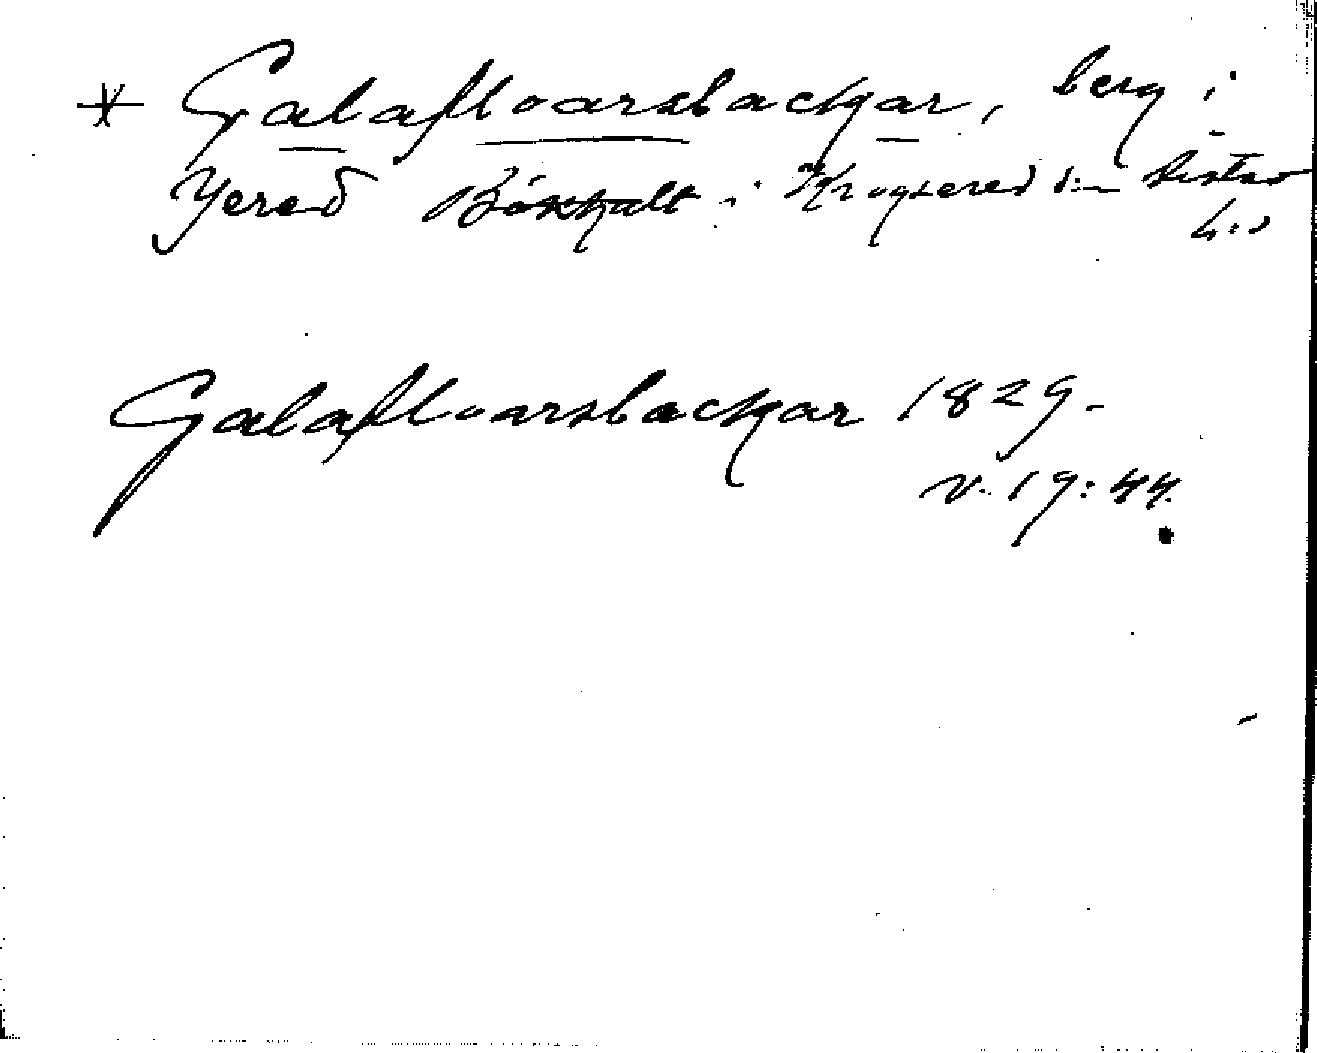 * Galafloarsbackar, berg i
Yered Bökhult i Krogsered sn Årstad
hd
Galafloarsbackar 1829.
v. 19:44.